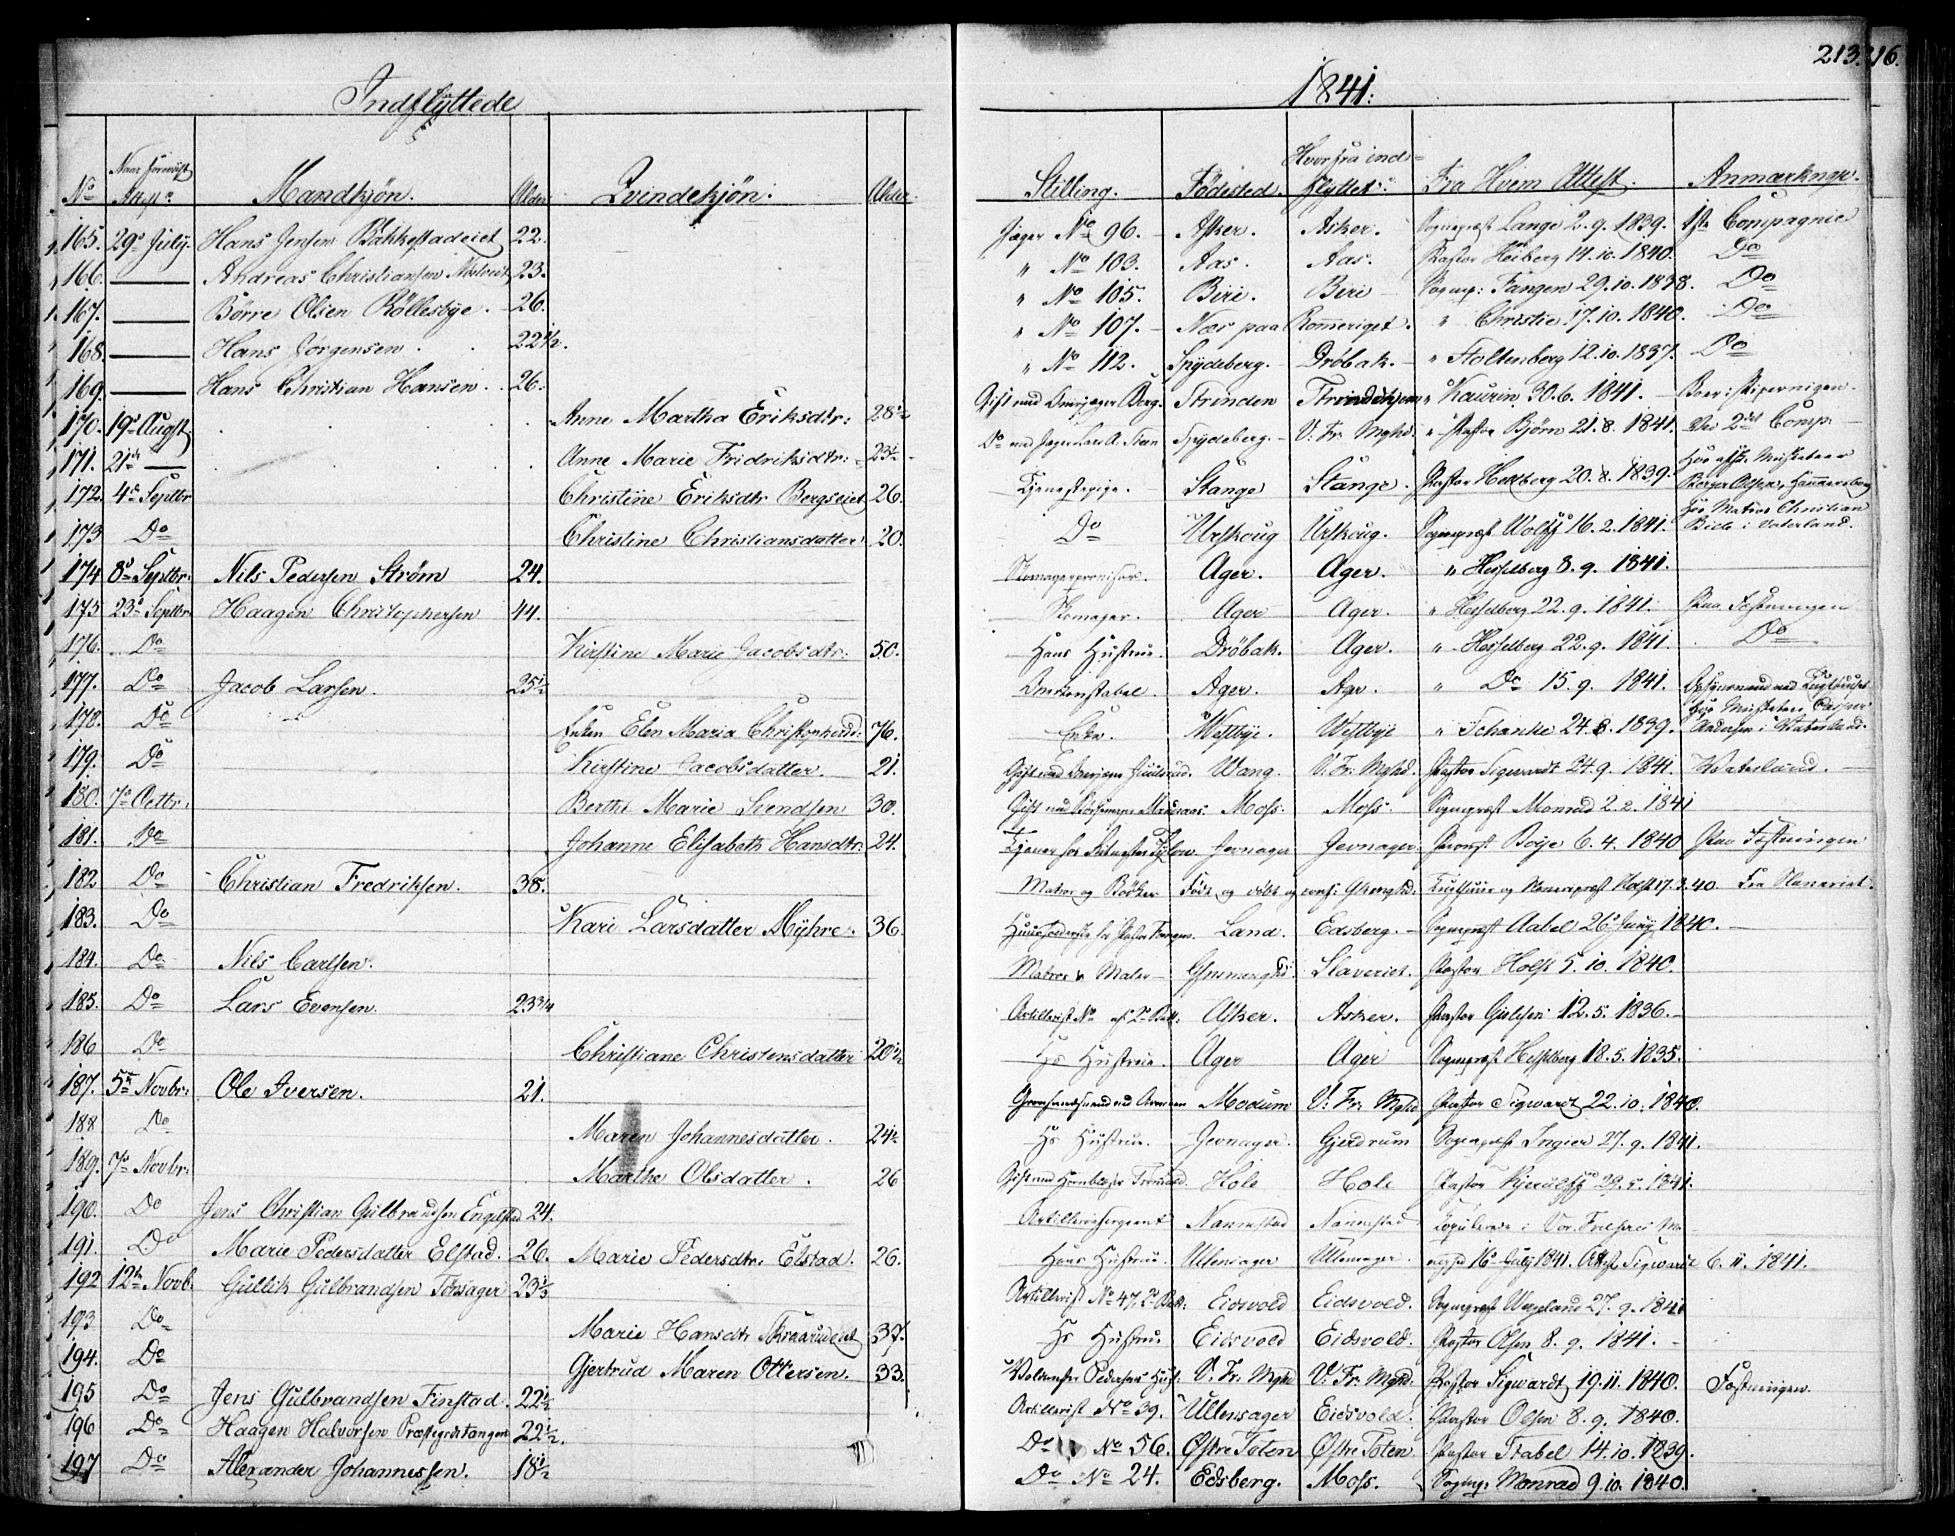 213. 216.
Indflyttede 1841.
No Naar foreviist Attest. Mandkjøn. Alder Qvindekjøn. Alder. Stilling. Fødested. Hvorfra indflyttet. Fra Hvem Attest. Anmærkngr.
165. 29d July. Hans Jensen Bakkestadeiet 22. Jæger No 96. Asker. Asker. Sognepræst Lange 2.9.1839. 1ste Compagnie
166. Andreas Christiansen 23. " No 103. Aas. Aas. Pastor Heiberg 14.10.1840. Do
167. Børre Olsen Røllesbye. 26. " No 105. Biri. Biri Sognep: Fangen 29.10.1838. Do
168. Hans Jørgensen. 22 1/2. " No 107. Næs paa Romeriget. " Christie 17.10.1840. Do
169. Hans Christian Hansen. 26. " No 112. Spydeberg. Drøbak. " Stoltenberg 12.10.1837. Do
170. 19d Augst. Anne Martha Eriksdtr: 28 1/2 Gift med Berg. Strinden Trondhjem " Kaurin 30.6.1841.
171. 21de Anne Marie Fridriksdtr: 23 1/2 Do med Jæger Lars A. Spydeberg. V: Fr. Mghd. " Pastor Bjørn 21.8.1841. Ved 2det Comp:
172. 4de Septbr Christine Eriksdtr Bergseiet 26. Tjenestepige. Stange Stange. Pastor Hedberg 20.8.1839.
173 Do Christine Christiansdatter 20. Do Urskoug Urskoug. Sognepræst Wolff 16.2.1841. hos Matros Christian i Vaterland.
174 8d Septbr: Nils Pedersen Strøm 24. Ager. Ager. " Hesselberg 8.9.1841.
175 23d Septbr Haagen Christophersen 44. Skomager. Ager Ager. " Hesselberg 22.9.1841. Paa Fæstningen
176. Do Kirstine Marie Jacobsdtr: 50. Hans Hustrue. Drøbak. Ager. " Hesselberg 22.9.1841. Do
177. Do Jacob Larsen. 25 1/2 Ager. Agr. " Do 15.9.1841.
178. Do Enken Elen Maria 76. Enke. Westbye. Westbye " Schanke 24.8.1839.
179. Do Kirstine Jacobsdatter. 21. Wang. V: Fr: Mghd. Pastor Sigwardt 24.9.1841. Waterland.
180. 7d Octbr: Berthe Marie Svendsen 30. Moss. Moss. Sognepræst Monrad 2.2.1841
181. Do Johanne Elisabeth Hansdtr. 24. Jevnager Jevnager. Provst Boje 6.4.1840 Paa Fæstningen
182 Do Christian Fredriksen. 38. Matros og Bødker Født og døbt og conf: 17.3.40. Fra Slaveriet.
183. Do Kari Larsdatter Myhre. 36. Land. Edsberg. Sognepræst Aabel 26d Juny 1840.
184. Do Nils Carlsen. Matros & Maler Slaveriet. Pastor Holst 5.10.1840.
185. Do Lars Evensen. 23 3/4 Artillerist No af 2d Batt: Asker. Asker. Pastor 12.5.1836.
186 Do Christiane Christensdatter 20 1/2 Hs Hustrue. Ager Ager Sognepræst Hesselberg 18.5.1835.
187. 5te Novbr: Ole Iversen. 21. Modum V: Fr: Mghd Pastor Sigwardt 22.10.1840.
188 Do Maren Johannesdatter. 24 1/2 Hs Hustrue. Jevnager. Gjerdrum Sognepræst Ingier 27.9.1841.
189. 7d Novbr: Marthe Olsdatter. 26 Hole Hole Pastor Kjerulff 29.5.1841.
190. Do Jens Christian Gulbrandsen Engelstad 24. Artilleriesergeant Nannestad Nannestad Copulerede i Vor Frelsers Me-
191. Do Marie Pedersdatter Elstad. 26. Marie Pedersdtr. Elstad. 26. Hans Hustrue. Ullensager Ullensager. nighd 16de July 1841. Attst. Sigwardt 6.11.1841.
192 12te Novb. Gullik Gulbrandsen Tønsager 23 1/3 Artillerist No 47, 2d Batt: Eidsvold Eidsvold. Sognepræst Wergeland 27.9.1841
193 Do Marie Hansdtr Skraarudeiet 37. Hs Hustru Eidsvold Eidsvold. Pastor Olsen 8.9.1841.
194. Do Gjertrud Maren Ottersen. 33. Pedersens Hust. V. Fr. Mghd V: Fr. Mghd. Pastor Sigwardt 19.11.1840. Fæstningen.
195 Do Jens Gulbrandsen Finstad. 22 1/2 Artillerist No 39. Ullensager Eidsvold. Pastor Olsen 8.9.1840.
196 Do Haagen Halvorsen Præstegrdstangen 22 1/2. Do No 56. Østre Toten Østre Toten Pastor Stabel 14.10.1839.
197 Do Alexander Johannessen. 18 1/2 Do No 24. Edsberg. Moss. Sognep. Monrad 9.10.1840.